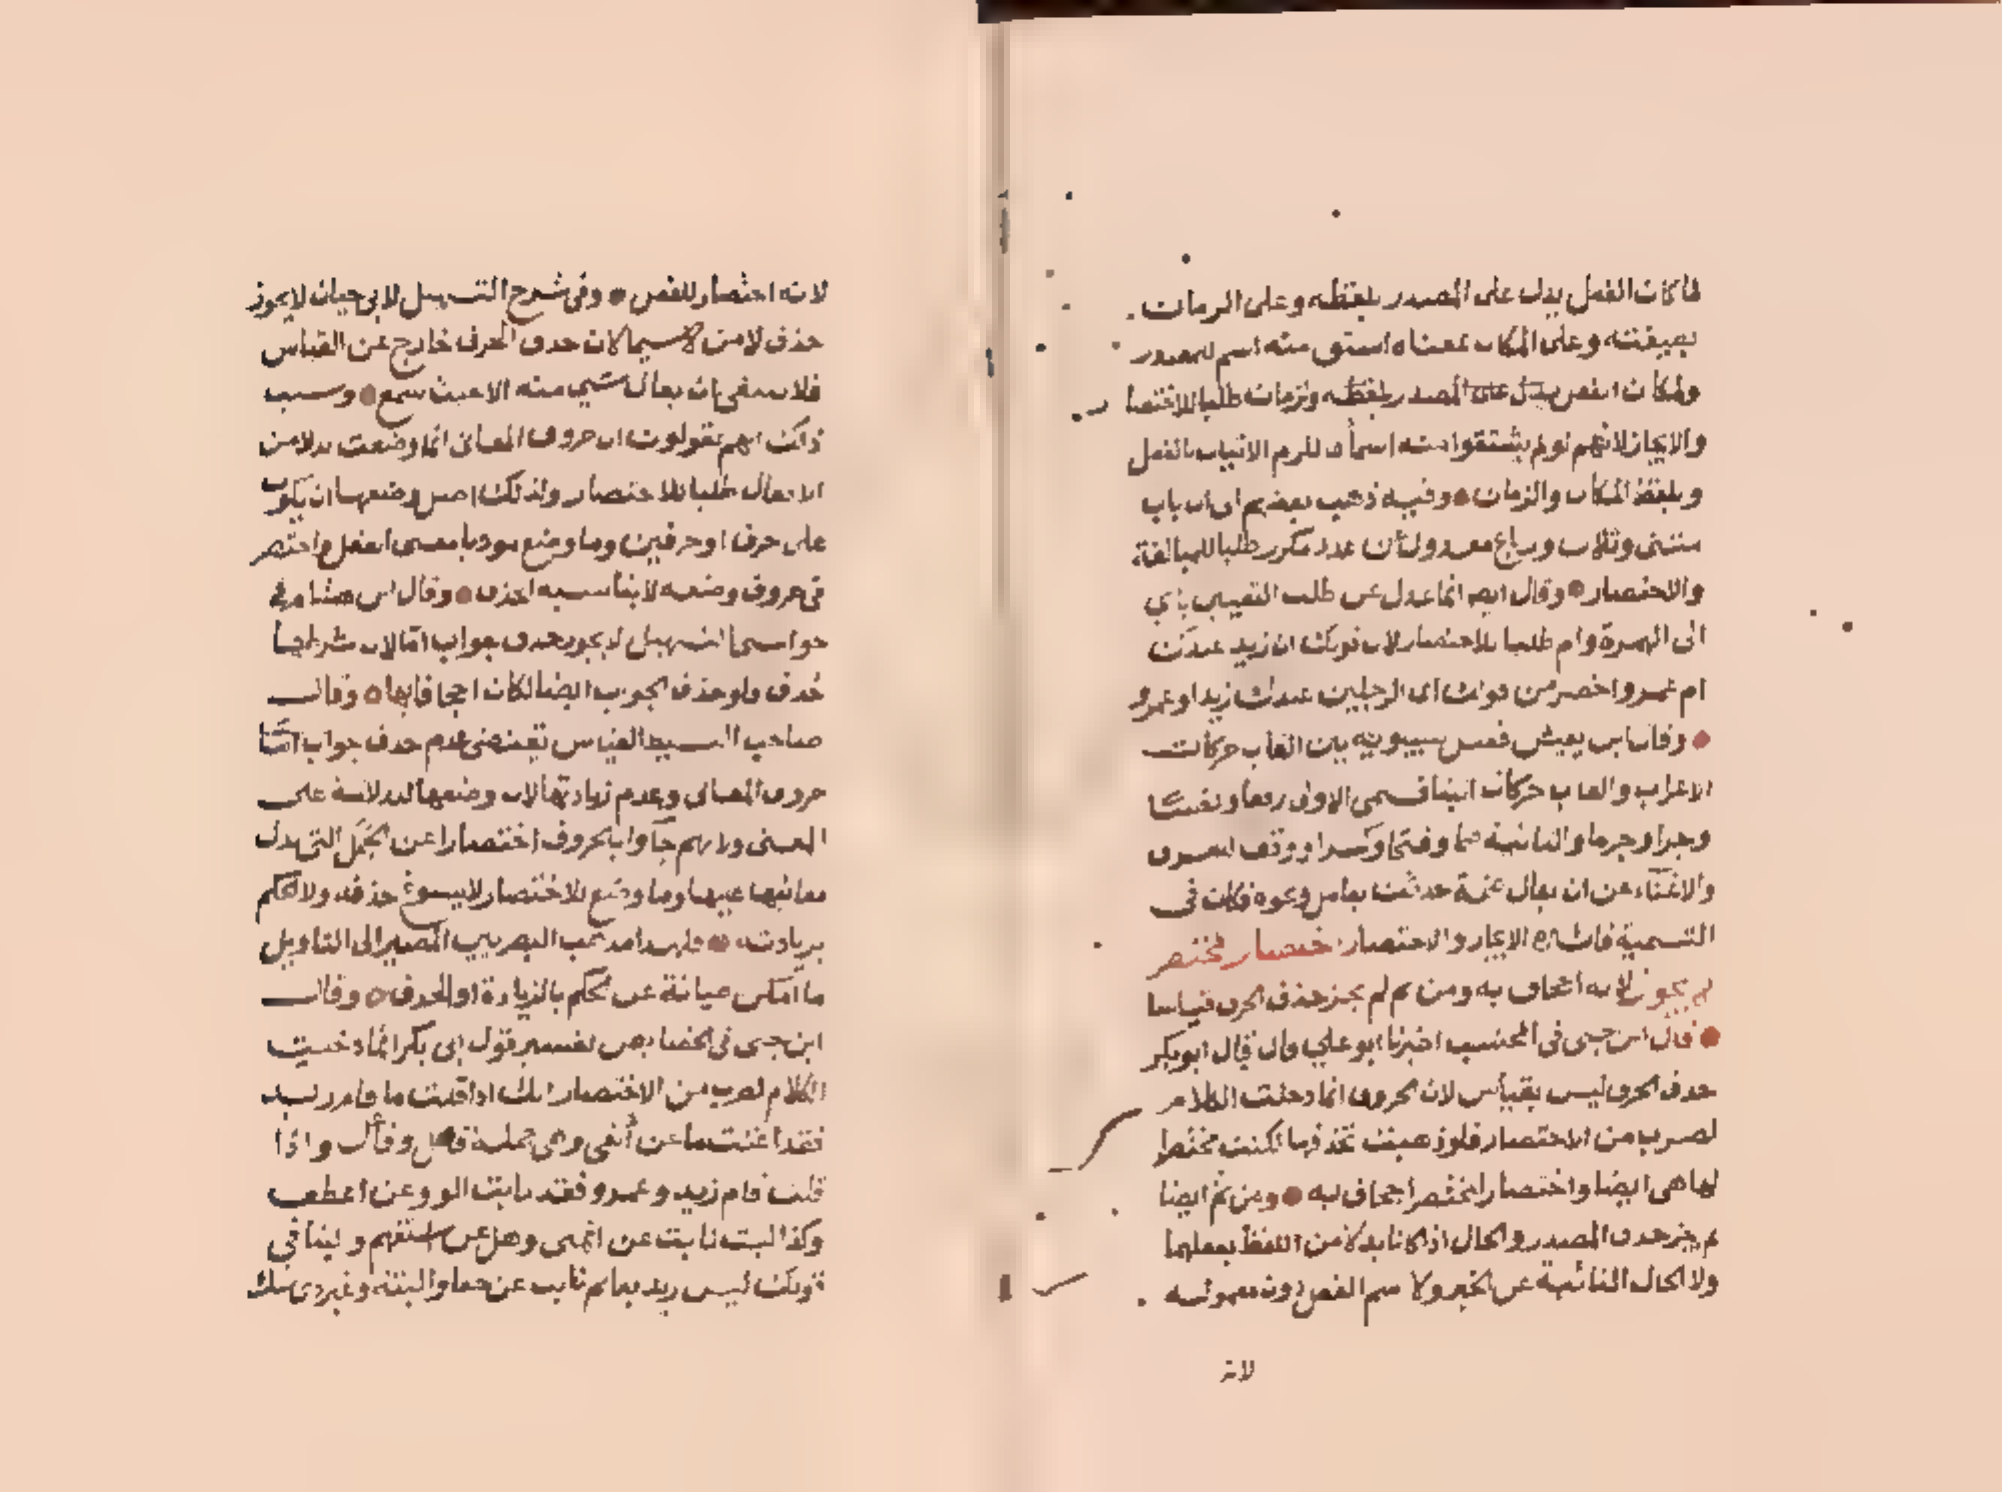 فلما كان الفعل يدل على المصدر بلفظه وعلى الزمان
بصيغته وعلى المكان بمعناه اشتق منه اسم للمصدر
ولمكان الفعل على المصدر بلفظه ولزمانه طلبا للاختصا
والايجاز لانهم لو لم يشتقوا منه اسماه للزم الاتيان بالفعل
وبلفظ المكان والزمان وفيه ذهب بعضهم الى ان باب
مثنى وثلاث ورباع معدول عن عدد مكرر طلبا للمبالغة
والاختصار وقال انما عدل عن طلب التعيين باي
الى الهمزة وام طلبا للاختصار لان قولك ازيد عندك
ام عمرو اخصر من قولك اى الرجلين عندك زيد او عمرو
وقال ابن يعيش فصل سيبويه بين القاب حركات
الاعراب والقاب حركات البنا فسمى الاول رفعا ونصبا
وجرا وجزما والثانية ضما وفتحا وكسرا ووقفا للفرق
والاغناء عن ان يقال ضمة حدثت بعامل ونحوه فكان في
التسمية فائدة الايجاز والاختصار اختصار المختصر
لا يجوز لانه اجحاف به ومن ثم لم يجز حذف الحرف قياسا
قال ابن جنى فى المحتسب اخبرنا ابو علي قال قال ابو بكر
حذف الحرف ليس بقياس لان الحروف انما دخلت الكلام
لضرب من الاختصار فلو ذهبت تحذفها لكنت مختصرا
لها هى ايضا واختصار المختصر اجحاف به ومن ثم ايضا
لم يجز حذف المصدر والحال اذا كانا بدلا من اللفظ بفعلهما
ولا الحال النائبة عن الخبر ولا اسم الفعل دون معموله
لانه
لانه اختصار للفعل وفى شرح التسهيل لابى حيان لا يجوز
حذف لا من لا سيما لان حذف الحرف خارج عن القياس
فلا ينبغى ان يقال شيء منه الا حيث سمع وسبب
ذلك انهم يقولون ان حروف المعانى انما وضعت بدلا من
الافعال طلبا للاختصار ولذلك اصل وضعها ان يكون
على حرف او حرفين وما وضع موديا معنى الفعل واختصر
فى حروف وضعه لا يناسبه الحذف وقال ابن هشام في
حواشى التسهيل لا يجوز حذف جواب اما لان شرطها
حذف ولو حذف الجواب ايضا لكان اجحافا بها وقال
صاحب البسيط القياس يقتضى عدم حذف جواب اما
حروف المعانى وعدم زيادتها لان وضعها للدلالة على
المعنى ولانهم جاوا بالحروف اختصارا عن الجمل التى تدل
معانيها عليها وما وضع للاختصار لا يسوغ حذفه ولا الحكم
بزيادته فلهذا مذهب البصريين المصير الى التاويل
ما امكن صيانة عن الحكم بالزيادة او الحذف وقال
ابن جنى فى الخصايص تفسير قول ابى بكر انما دخلت
الكلام لضرب من الاختصار انك اذا قلت ما قام زيد
فقد اغنت ما عن أنفى وهى جملة فعل وفاعل واذا
قلت قام زيد وعمرو فقد نابت الواو عن اعطف
وكذا ليت نابت عن اتمنى وهل عن استفهم والبا في
قولك ليس زيد بقايم نابت عن حقا والبتة وغير ذى شك